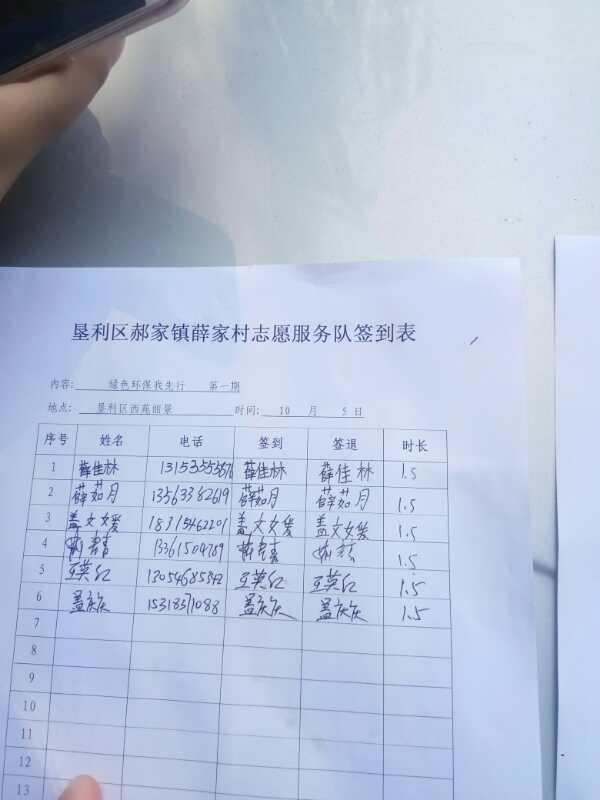 垦利区郝家镇薛家村志愿服务队签到表
内容: 绿色环保我先行 第一期
地点: 垦利区西苑丽景 时间: 10 月 5 日
序号 姓名 电话 签到 签退 时长
1 薛佳林 薛佳林 薛佳林 1.5
2 薛茹月 13563382619 薛茹月 薛茹月 1.5
3 盖文媛 18315462201 盖文媛 盖文媛 1.5
4 13361504789 1.5
5 王英红 13054685342 王英红 王英红 1.5
6 15318371088 1.5
7
8
9
10
11
12
13